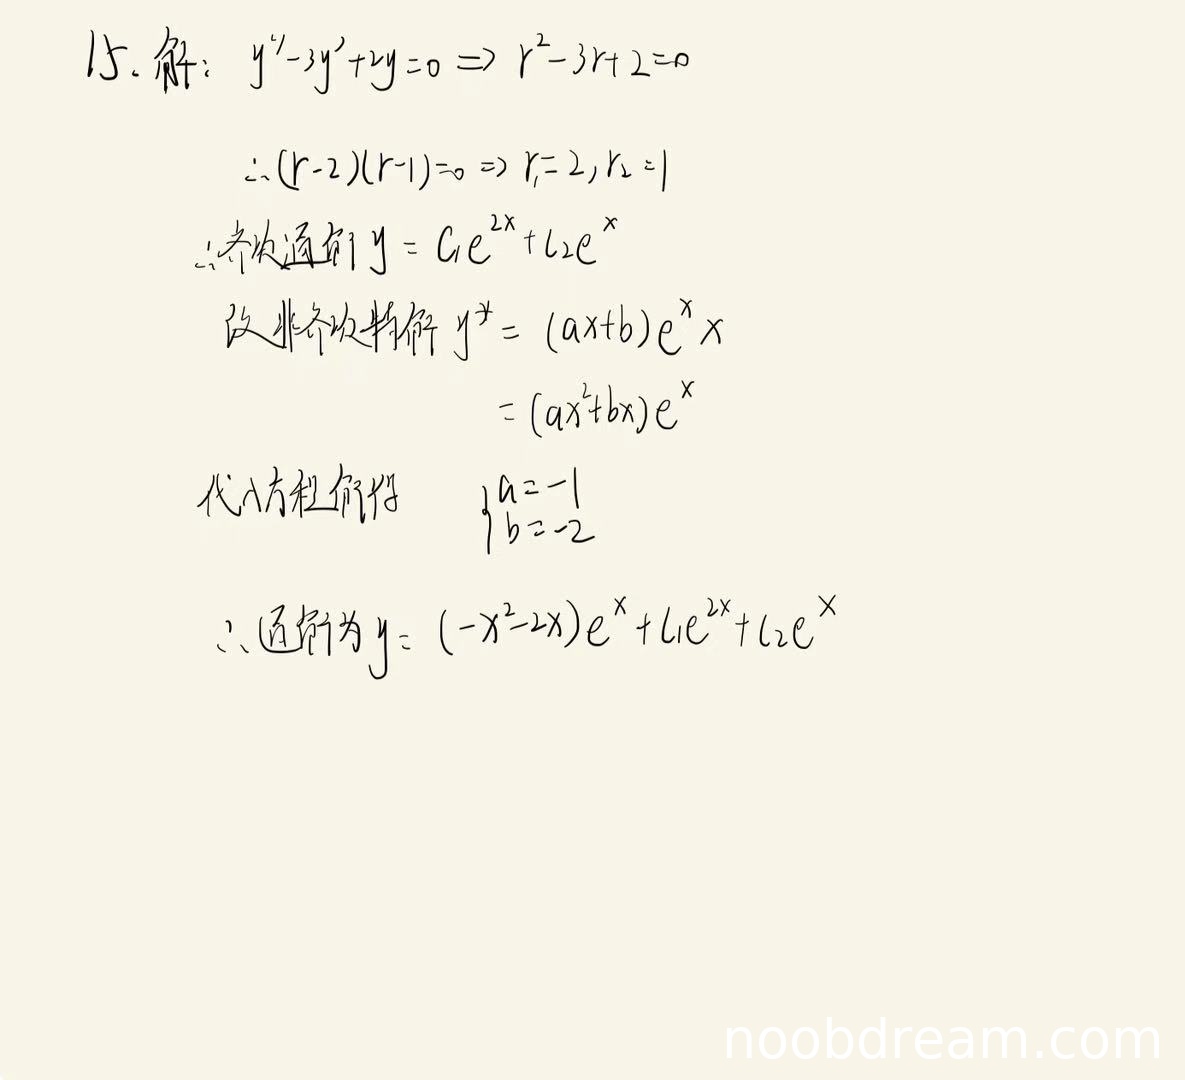 15. 解: y''-3y'+2y=0 => r²-3r+2=0
∴(r-2)(r-1)=0 => r₁=2, r₂=1
∴齐次通解 y = C₁e^{2x}+C₂e^x
设非齐次特解 y* = (ax+b)e^x x
= (ax²+bx)e^x
代入方程解得 { a=-1
b=-2
∴通解为 y= (-x²-2x)e^x+C₁e^{2x}+C₂e^x
noobdream.com